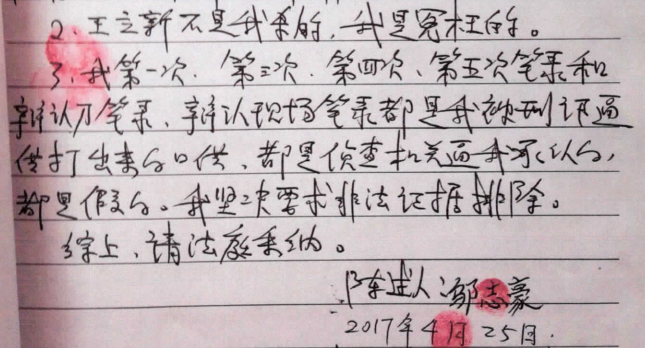 2. 王立新不是我杀的，我是冤枉的。
3. 我第一次、第三次、第四次、第五次笔录和
辩认刀笔录、辩认现场笔录都是我被刑讯逼
供打出来的口供，都是侦查机关逼我承认的，
都是假的。我坚决要求非法证据排除。
综上，请法庭采纳。
陈述人：邹志豪
2017年4月25日.